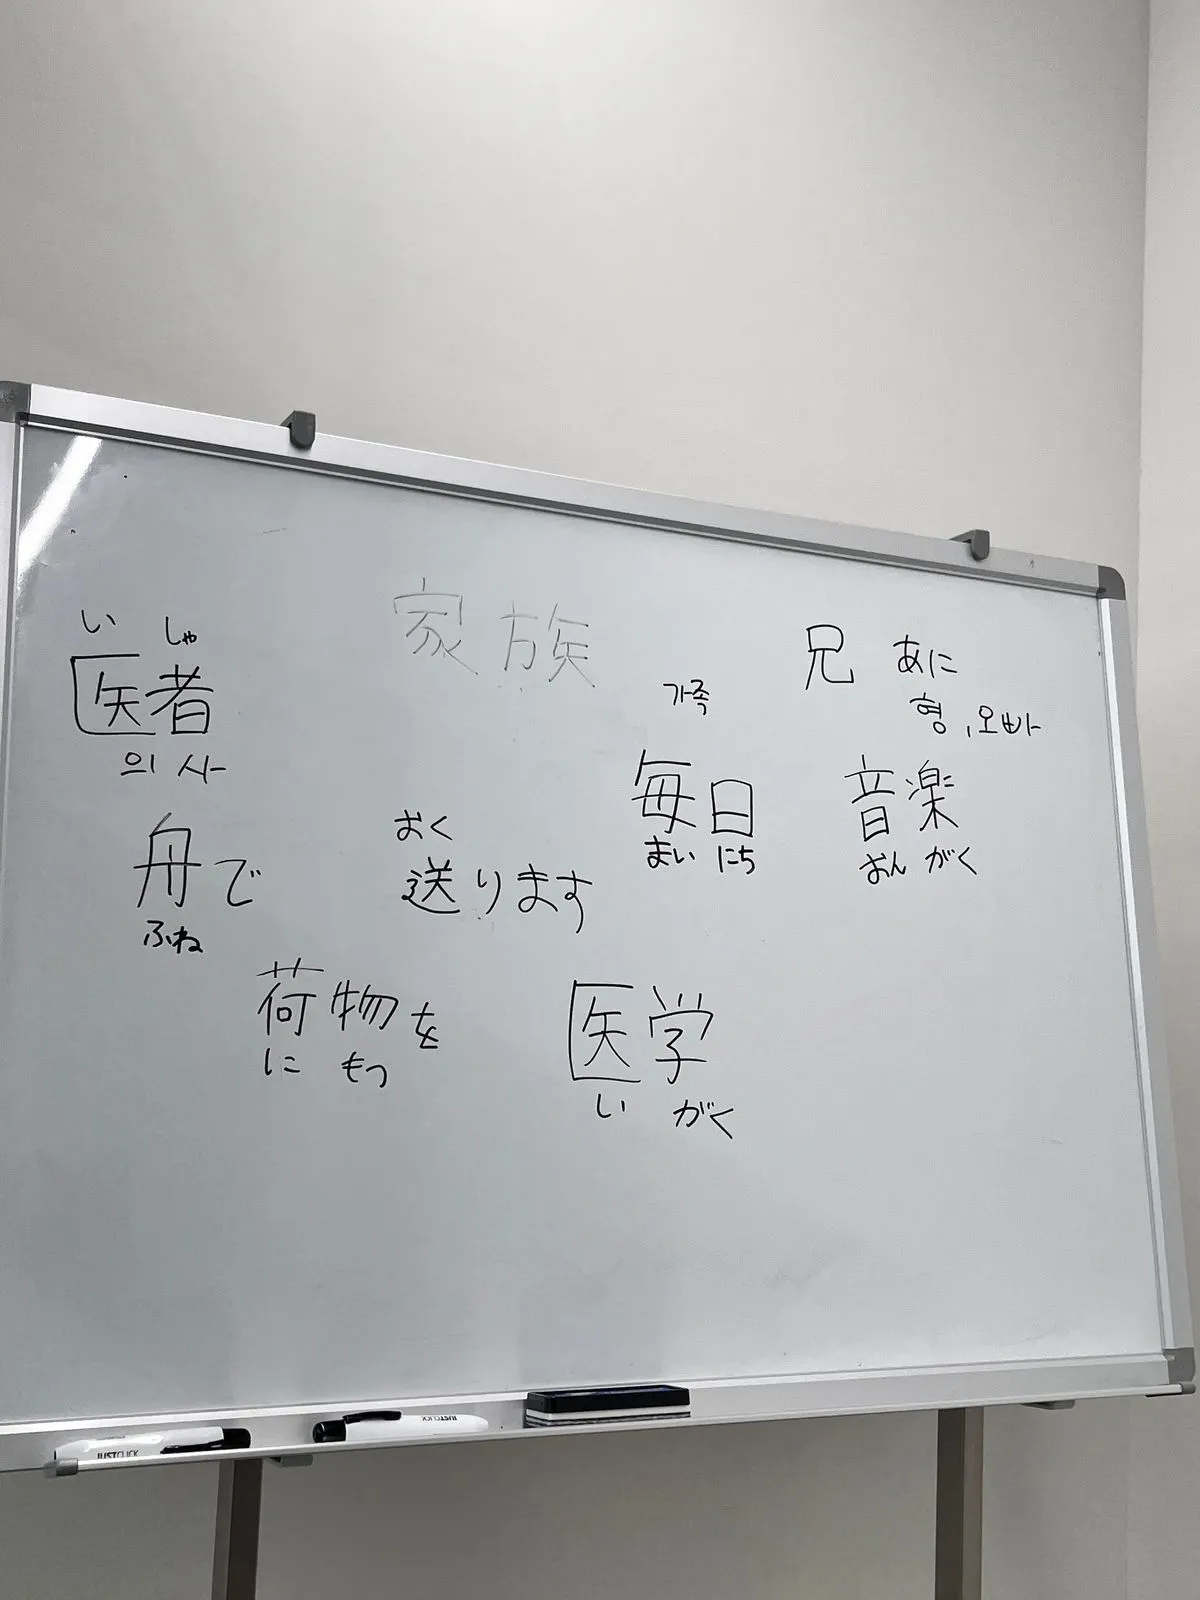 い しゃ
医者
의사
家族
가족
兄 あに
형, 오빠
毎日
まい にち
音楽
おん がく
舟で
ふね
おく
送ります
荷物を
に もつ
医学
い がく
JUSTCLICK
JUSTCLICK